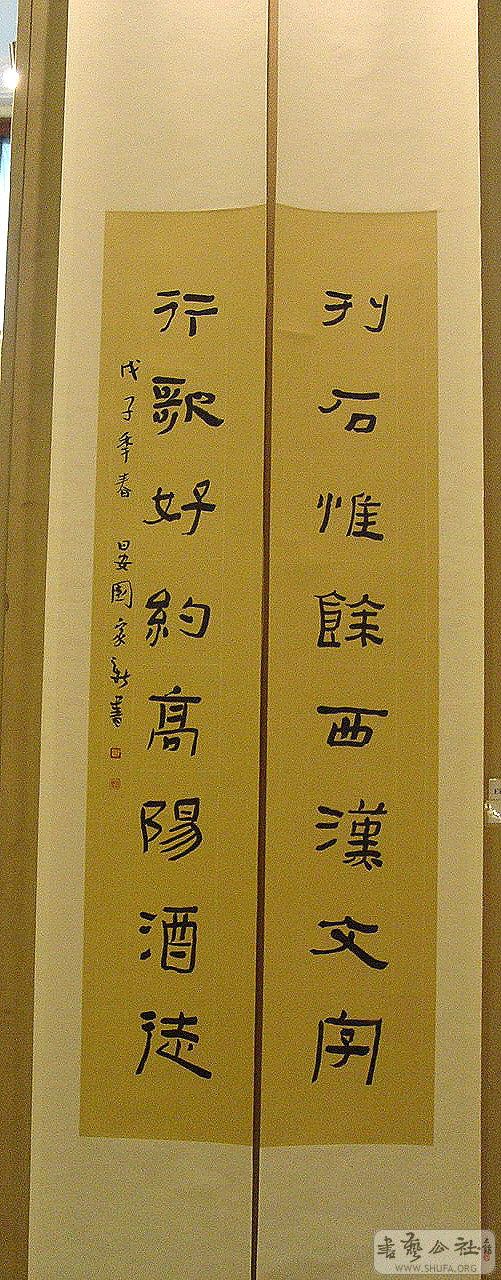 刋石惟餘西漢文字
行歌好約高陽酒徒
戊子季春 晏國家新書
書藝公社
WWW.SHUFA.ORG